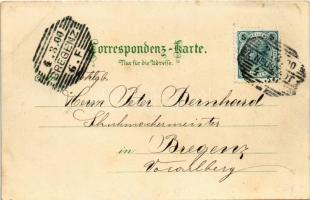 Correspondenz-Karte.
Nur für die Adresse.
6.3.00
BREGENZ
6.F
Herrn Peter Bernhard
Schuhmachermeister
in Bregenz
Voralberg